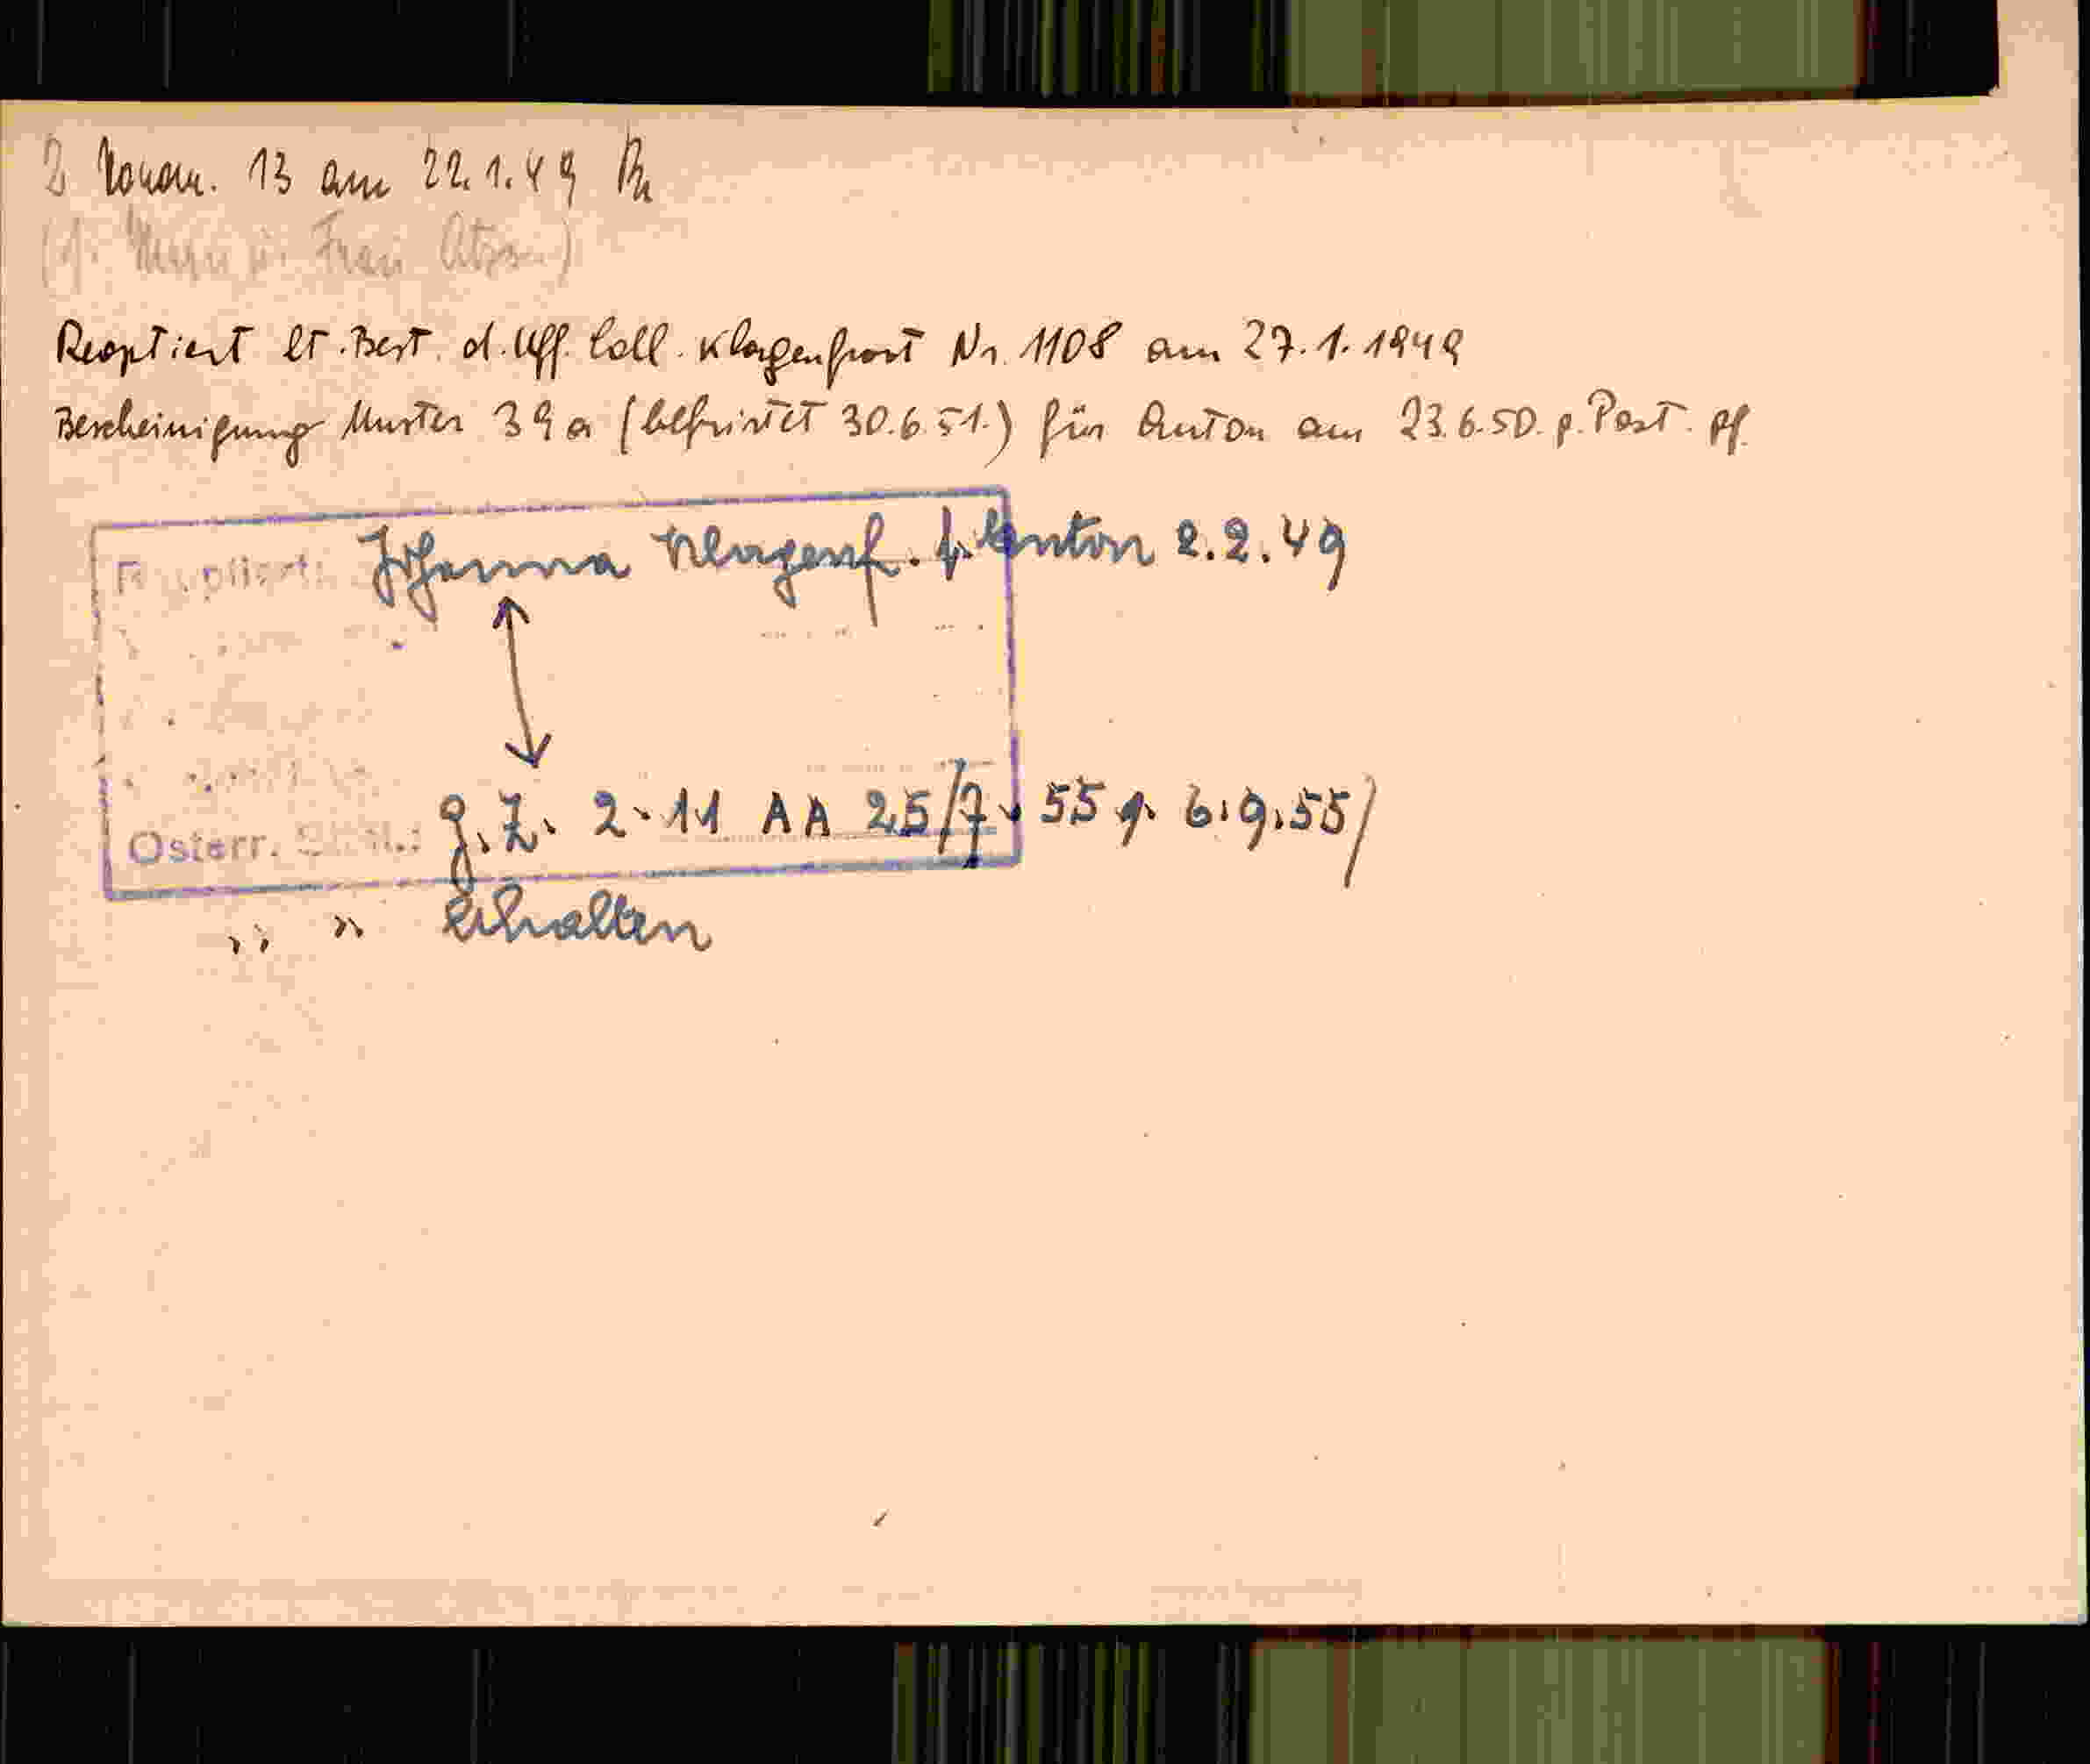 13 am 22.1.49
Frau
Reoptiert lt. Best. d. Uff. Coll. Klagenfurt Nr. 1108 am 27.1.1949
Bescheinigung Muster 39a (befristet 30.6.51.) für Anton am 23.6.50. p. Post. pf.
Johanna Klagenf. f. Anton 2.2.49
g. Z. 2.11 AA 25/7. 55 6.9.55/
Österr.
" " Erhalten